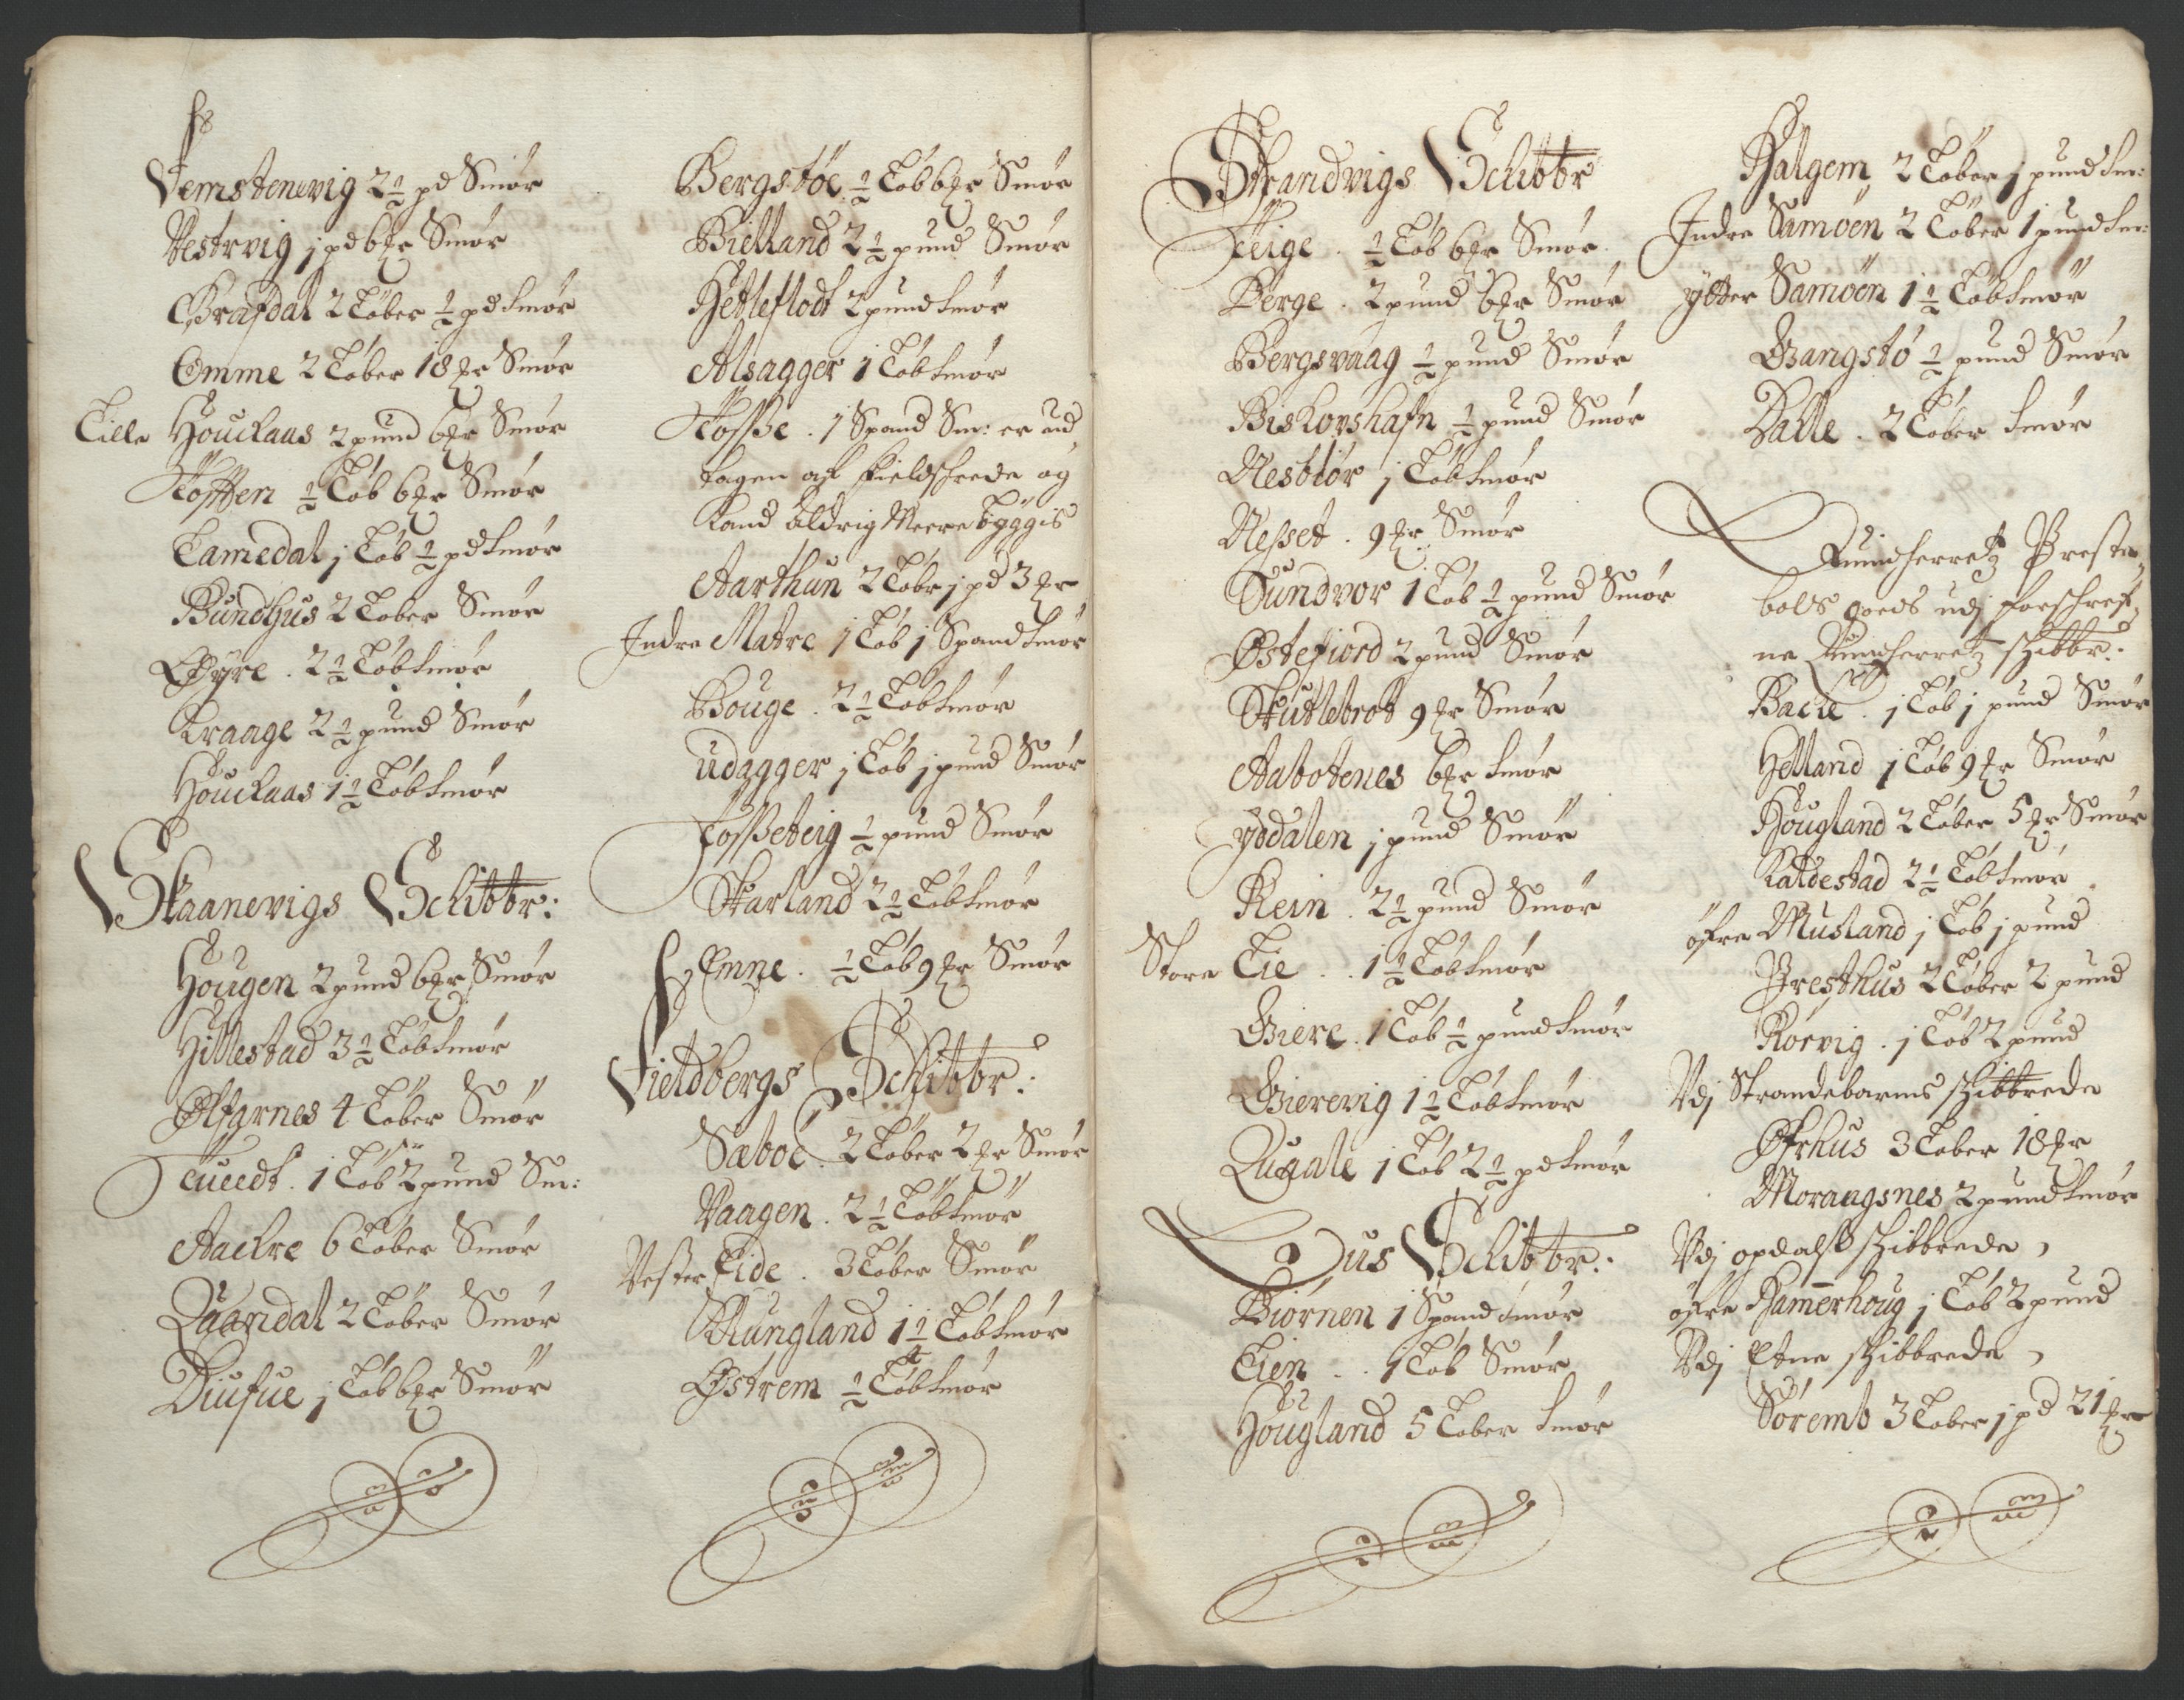 Femstenevig 2½ pd Smør
Vestrvig j pd 6 ℔r Smør
Grafdal 2 Løber ½ pd Smør
Omme 2 Løber 18 ℔r Smør
Lille Houckaas 2 pund 6 ℔r Smør
Tofften ½ Løb 6 ℔r Smør
Lamedal j Løb ½ pd Smør
Bundhus 2 Løber Smør
Øyre . 2½ Løb Smør
Kraage 2½ pund Smør
Houckaas 1½ Løb Smør
Skaanevigs Schibbr:
Hougen 2 pund 6 ℔r Smør
Hillestad 3½ Løb Smør
Ølfarnes 4 Løber Smør
Tueedt . 1 Løb 2 pund Sm:
Aackre 6 Løber Smør
Quandal 2 Løber Smør
Diufue j Løb 6 ℔r Smør
Bergstøe ½ Løb 6 ℔r Smør
Bielland 2½ pund Smør
Hetleflodt 2 pund Smør
Alsagger 1 Løb Smør
Fosße . 1 Spand Sm: er aud
tagen aff Fieldschrede og
Kand aldrig Meere byggis
Aarthun 2 Løbr j pd 3 ℔r
Indre Matre 1 Løb j Spand Smør
Bouge . 2½ Løb Smør
Udagger j Løb j pund Smør
Fosßeteig ½ pund Smør
Skarland 2½ Løb Smør
Emne . ½ Løb 9 ℔r Smør
Fieldbergs Schibbr:
Sæboe . 2 Løber 2 ℔r Smør
Vaagen . 2½ Løb Smør
Vester Eide . 3 Løber Smør
Mungland 1½ Løb Smør
Østrem ½ Løb Smør
Strandvigs Schibbr
Teige . ½ Løb 6 ℔r Smør
Berge . 2 pund 6 ℔r Smør
Bergsvaag ½ pund Smør
Biskopshafn ½ pund Smør
Nesbiør j Løb Smør
Nesset . 9 ℔r Smør
Sundvor 1 Løb ½ pund Smør
Østefiord 2 pund Smør
Skutlebrot 9 ℔r Smør
Aabotenes 6 ℔r Smør
Yddalen j pund Smør
Rein . 2½ pund Smør
Store Lie . . 1½ Løb Smør
Giere . 1 Løb ½ pund Smør
Gierevig 1½ Løb Smør
Quaale 1 Løb 2½ pd Smør
Ous Schibbr:
Biørnen 1 Spand Smør
Lien . . 1 Løb Smør
Hougland 5 Løber Smør
Halgem 2 Løber j pund Sm:
Indre Samøen 2 Løber 1 pund Sm:
ytter Samøen 1½ Løb Smør
Gangstø ½ pund Smør
Dalle . 2 Løber Smør
Quindherretz Preste
bols goeds udj forschref
ne Quindherretz schibbr:
Backe . j Løb j pund Smør
Helland j Løb 9 ℔r Smør
Hougland 2 Løber 5 ℔r Smør
Kaldestad 2½ Løb Smør
øfre Musland j Løb j pund
Presthus 2 Løber 2 pund
Rørvig . j Løb 2 pund
Udj Strandebarms schibbrede
Øfrhus 3 Løber 18 ℔r
Morangsnes 2 pund Smør
Udj opdals schibbrede
øfre Hamerhoug j Løb 2 pund
Udj Etne schibbrede
Søremb 3 Løber j pd 21 ℔r